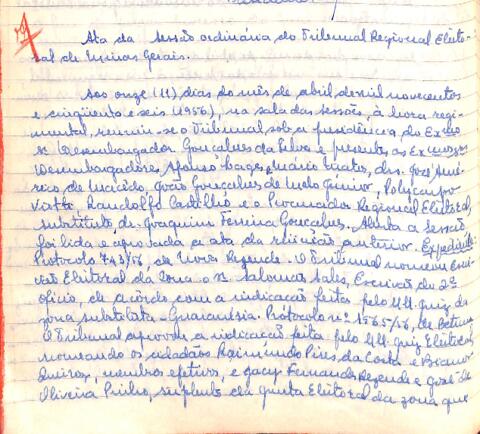 Ata da sessão ordinária do Tribunal Regional Eleito-
ral de Minas Gerais.
Aos onze (11) dias do mês de abril de mil novecentos
e cinquenta e seis (1956), na sala das sessões, à hora regi-
mental, reuniu-se o Tribunal sob a presidência do Exmo
Sr. Desembargador Gonçalves da Silva e presentes os Exmos Srs
Desembargadores Afonso Lages, Mário Matos, drs. José Amé-
rico de Macêdo, João Gonçalves de Melo Junior, Polycarpo
Viotti, Randolfo Castilho e o Procurador Regional Eleitoral,
substituto, dr. Joaquim Ferreira Gonçalves. Aberta a sessão
foi lida e aprovada a ata da reunião anterior. Expediente:
Protocolo 743/56, de Nova Rezende. O Tribunal nomeou Escri-
vão Eleitoral da zona o sr. Salomão Sales, Escrivão do 2º
ofício, de acôrdo com a indicação feita pelo MM. Juiz da
zona substituta - Guaranésia. Protocolo nº 1565/56, de Betim.
O Tribunal aprovou a indicação feita pelo MM. Juiz Eleitoral,
nomeando os cidadãos Raimundo Pires da Costa e
Queiroz, membros efetivos, e Jacy Fernandes Rezende e José de
Oliveira Pinho, suplente da Junta Eleitoral da zona que